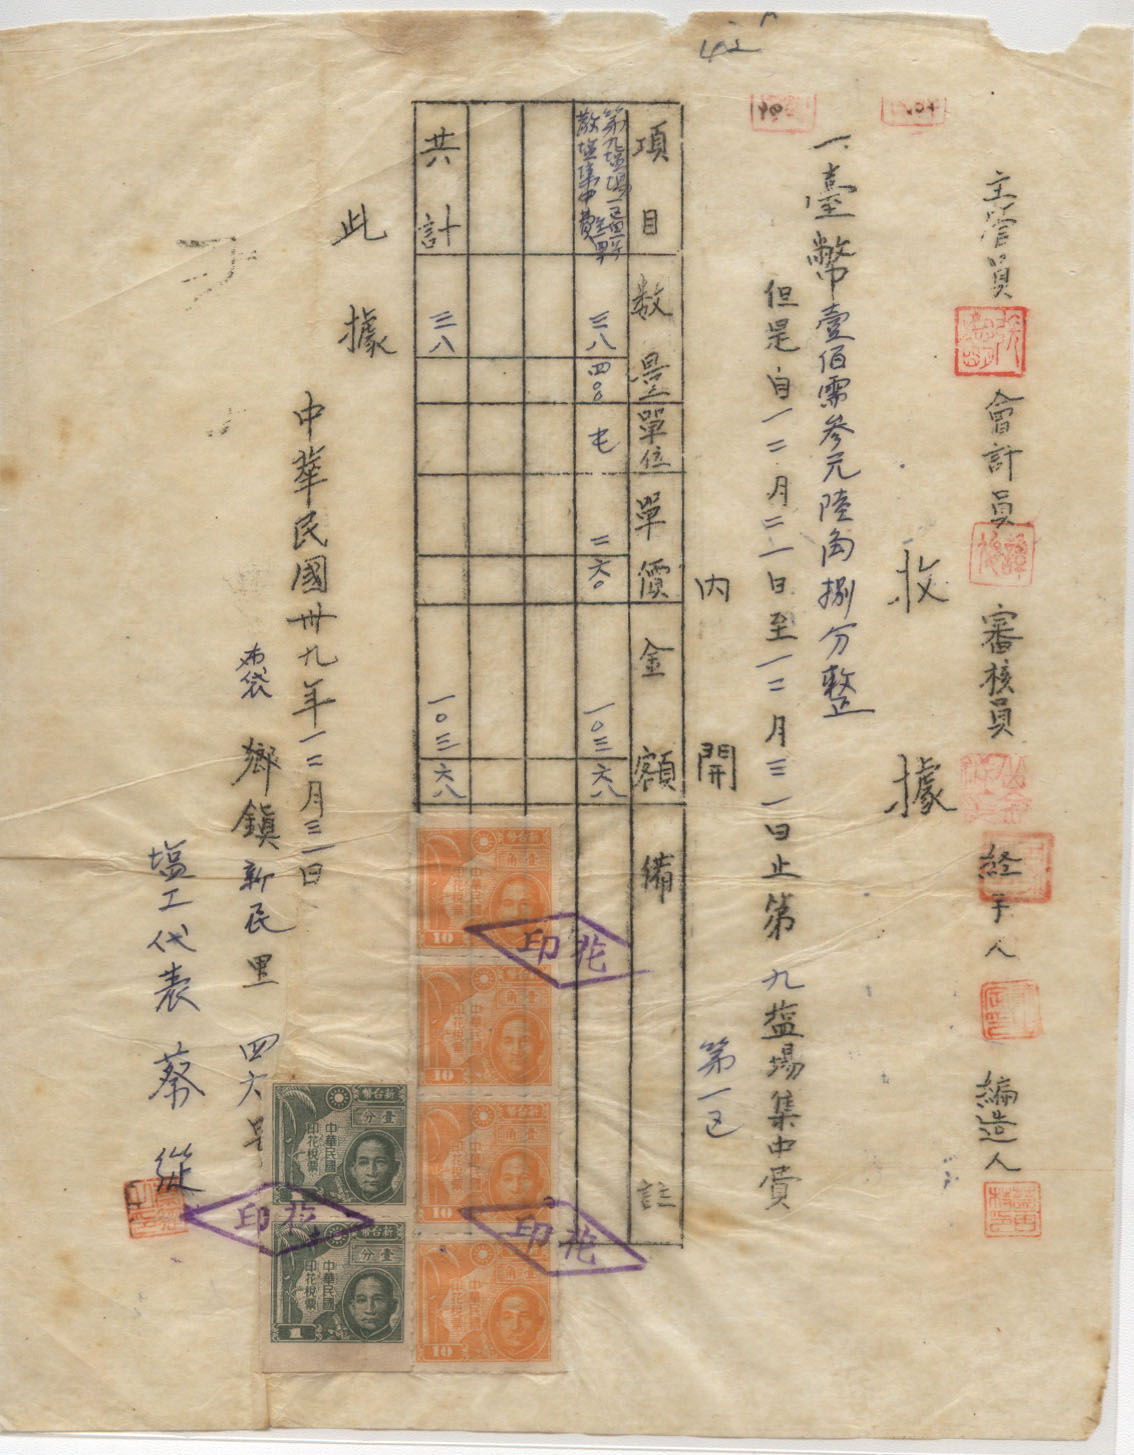 主管員 會計員 審核員 経手人 編造人
收據
一、臺幣壹佰零參元陸角捌分整
但是自一二月二一日至一二月三一日止第九塩場集中費
內開 第一区
項目 数量 單位 單價 金額 備註
第九塩場一区
散塩集中費
三八 四〇〇 屯 二六〇 一〇三六八
共計 三八 一〇三六八
此據
中華民國卅九年一二月三一日
布袋 鄉鎮新民里 四六号
塩工代表 蔡縱
新台幣
壹角
中華民國
印花稅票
10
新台幣
壹角
中華民國
印花稅票
10
新台幣
壹角
中華民國
印花稅票
10
新台幣
壹角
中華民國
印花稅票
10
新台幣
壹分
中華民國
印花稅票
新台幣
壹分
中華民國
印花稅票
1
印花
印花
印花